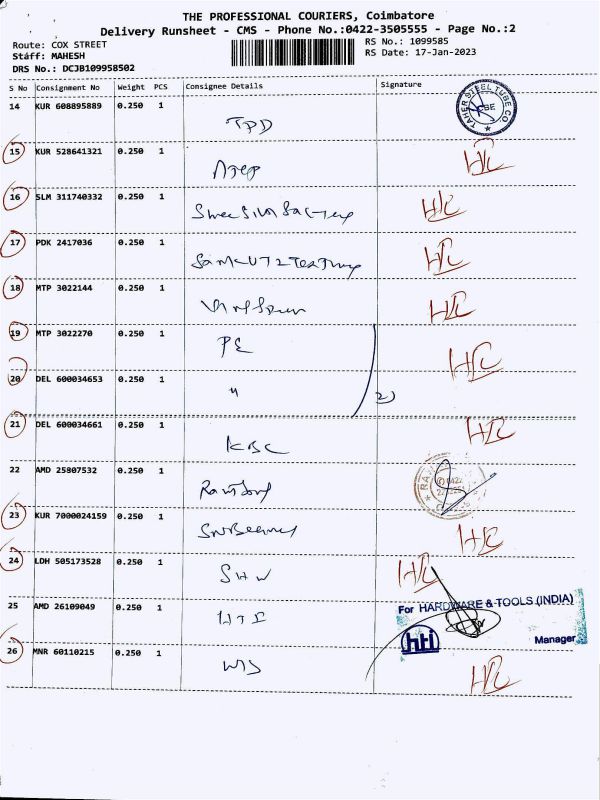 THE PROFESSIONAL COURIERS, Coimbatore
Delivery Runsheet - CMS - Phone No.:0422-3505555 - Page No.:2
Route: COX STREET
RS No.: 1099585
Staff: MAHESH
RS Date: 17-Jan-2023
DRS No.: DCJB109958502
S No Consignment No Weight PCS Consignee Details Signature
14 KUR 608895889 0.250 1
TAHER STEEL TUBE CO
CBE
TPD
15 KUR 528641321 0.250 1 H/C
16 SLM 311740332 0.250 1 H/C
17 PDK 2417036 0.250 1 H/C
18 MTP 3022144 0.250 1 H/C
19 MTP 3022270 0.250 1
PE H/C
20 DEL 600034653 0.250 1
" 2)
21 DEL 600034661 0.250 1 H/C
KBC
22 AMD 25807532 0.250 1
23 KUR 7000024159 0.250 1 H/C
24 LDH 505173528 0.250 1 H/C
SHW
25 AMD 26109049 0.250 1
For HARDWARE & TOOLS (INDIA)
HTI
hti Manager
26 MNR 60110215 0.250 1
WIS H/C